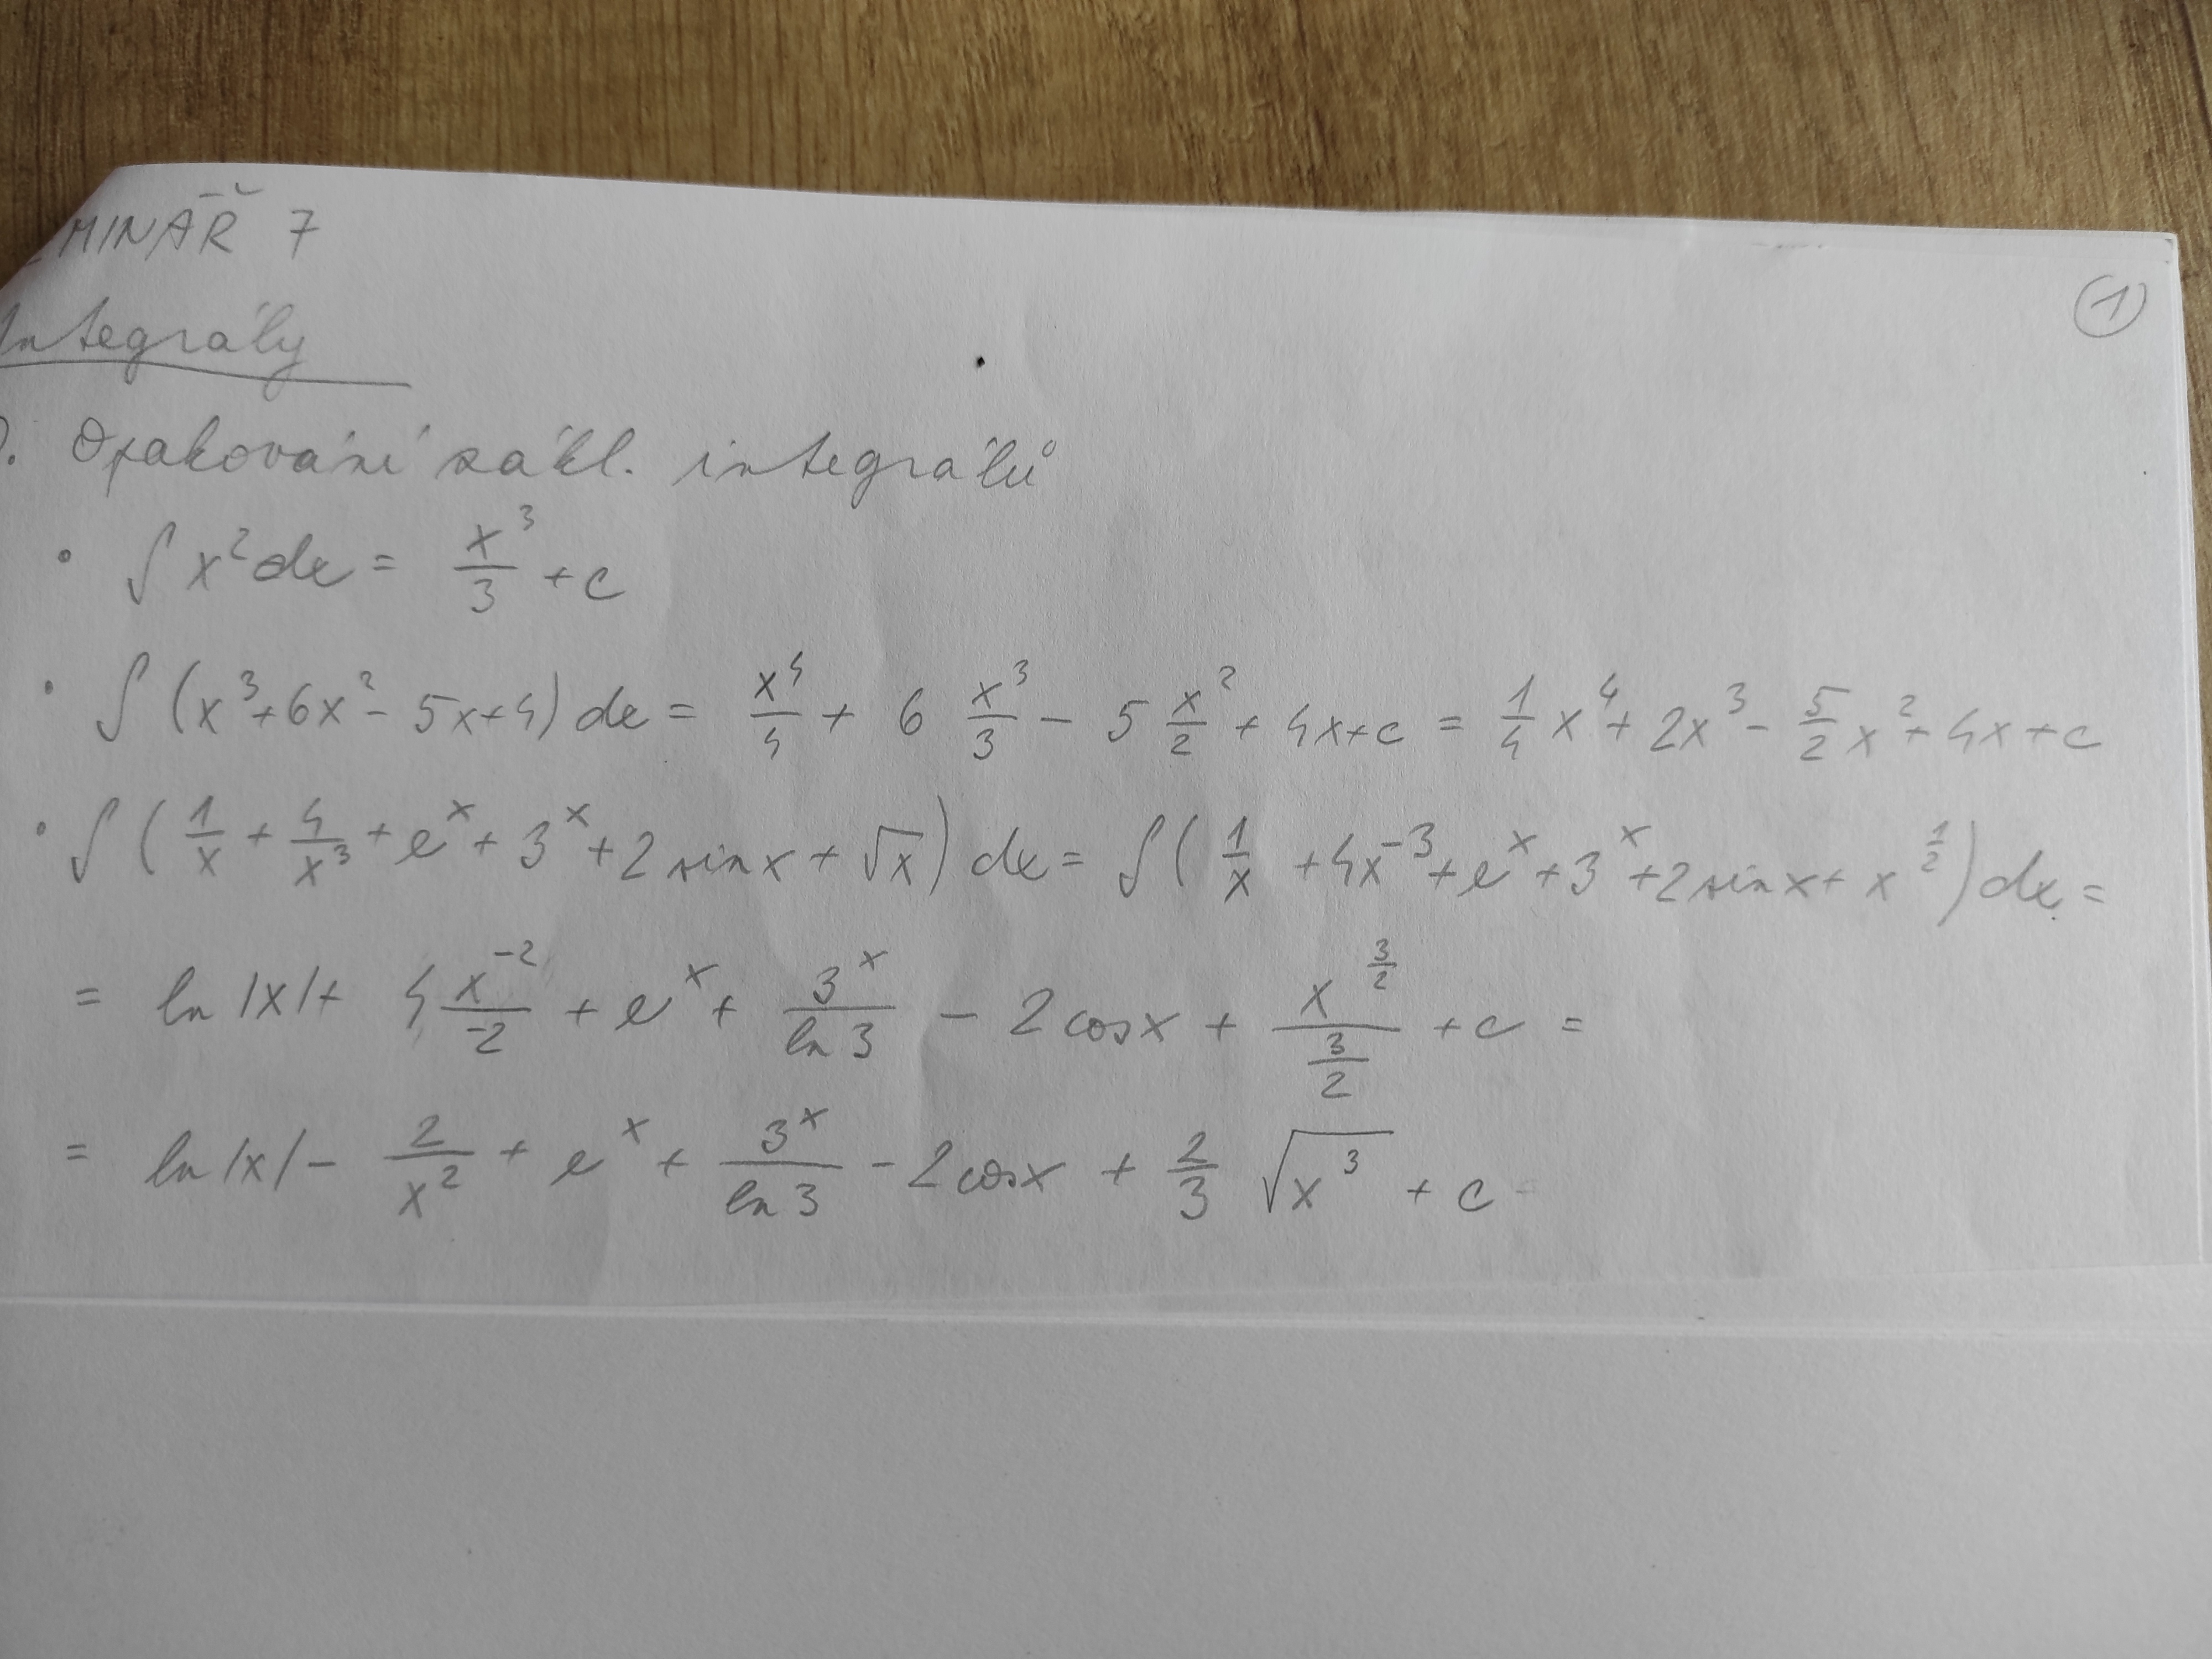 MINÁŘ 7
①
Integrály
0. Opakování zákl. integrálů
• ∫ x² dx = x³/3 + c
• ∫ (x³ + 6x² - 5x + 4) dx = x⁴/4 + 6 x³/3 - 5 x²/2 + 4x + c = 1/4 x⁴ + 2x³ - 5/2 x² + 4x + c
• ∫ (1/x + 4/x³ + eˣ + 3ˣ + 2 sin x + √x) dx = ∫ (1/x + 4x⁻³ + eˣ + 3ˣ + 2 sin x + x^(1/2)) dx =
= ln |x| + 4 x⁻²/-2 + eˣ + 3ˣ/ln 3 - 2 cos x + x^(3/2)/(3/2) + c =
= ln |x| - 2/x² + eˣ + 3ˣ/ln 3 - 2 cos x + 2/3 √x³ + c